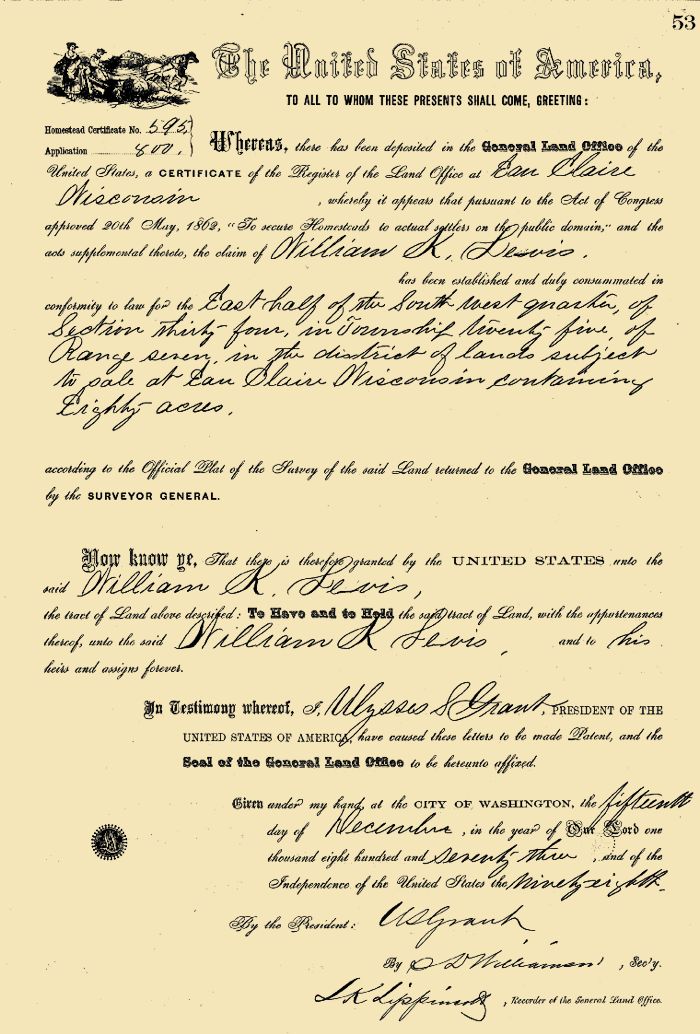 53
The United States of America,
TO ALL TO WHOM THESE PRESENTS SHALL COME, GREETING:
Homestead Certificate No. 595
Application 800.
Whereas, there has been deposited in the General Land Office of the
United States, a CERTIFICATE of the Register of the Land Office at Eau Claire
Wisconsin , whereby it appears that pursuant to the Act of Congress
approved 20th May, 1862, "To secure Homesteads to actual settlers on the public domain," and the
acts supplemental thereto, the claim of William K. Lewis.
has been established and duly consummated in
conformity to law for the East half of the South west quarter, of
Section thirty four, in Township twenty five, of
Range seven, in the district of lands subject
to sale at Eau Claire Wisconsin containing
Eighty acres.
according to the Official Plat of the Survey of the said Land returned to the General Land Office
by the SURVEYOR GENERAL.
Now know ye, That there is therefore granted by the UNITED STATES unto the
said William K. Lewis,
the tract of Land above described: To Have and to Hold the said tract of Land, with the appurtenances
thereof, unto the said William K Lewis, and to his
heirs and assigns forever.
In Testimony whereof, I, Ulysses S Grant, PRESIDENT OF THE
UNITED STATES OF AMERICA, have caused these letters to be made Patent, and the
Seal of the General Land Office to be hereunto affixed.
Given under my hand, at the CITY OF WASHINGTON, the fifteenth
day of December, in the year of Our Lord one
thousand eight hundred and seventy three, and of the
Independence of the United States the ninety eighth.
By the President: U S Grant
By S D Williamson, Sec'y.
L K Lippincott, Recorder of the General Land Office.